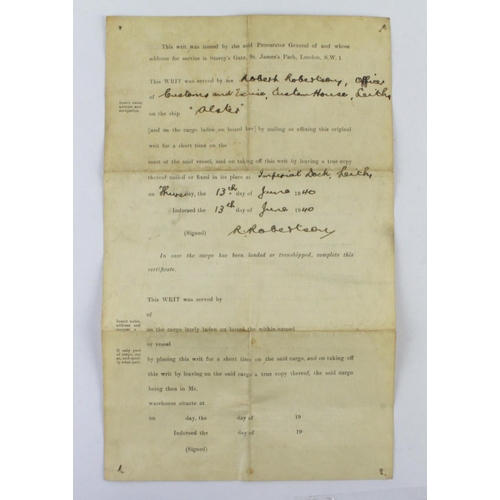 This writ was issued by the said Procurator General of and whose
address for service is Storey's Gate, St. James's Park, London, S.W. 1
This WRIT was served by me Robert Robertson, Officer
of Customs and Excise, Custom House, Leith
Insert name, address and occupation.
on the ship "Alster"
[and on the cargo laden on board her] by nailing or affixing this original
writ for a short time on the
mast of the said vessel, and on taking off this writ by leaving a true copy
thereof nailed or fixed in its place at Imperial Dock, Leith
on Thursday, the 13th day of June 1940
Indorsed the 13th day of June 1940
(Signed) R. Robertson
In case the cargo has been landed or transhipped, complete this
certificate.
This WRIT was served by
of
Insert name, address and
on the cargo lately laden on board the within-named
or vessel
If only part of cargo,
by placing this writ for a short time on the said cargo, and on taking off
this writ by leaving on the said cargo a true copy thereof, the said cargo
being then in Mr.
warehouse situate at
on day, the day of 19
Indorsed the day of 19
(Signed)